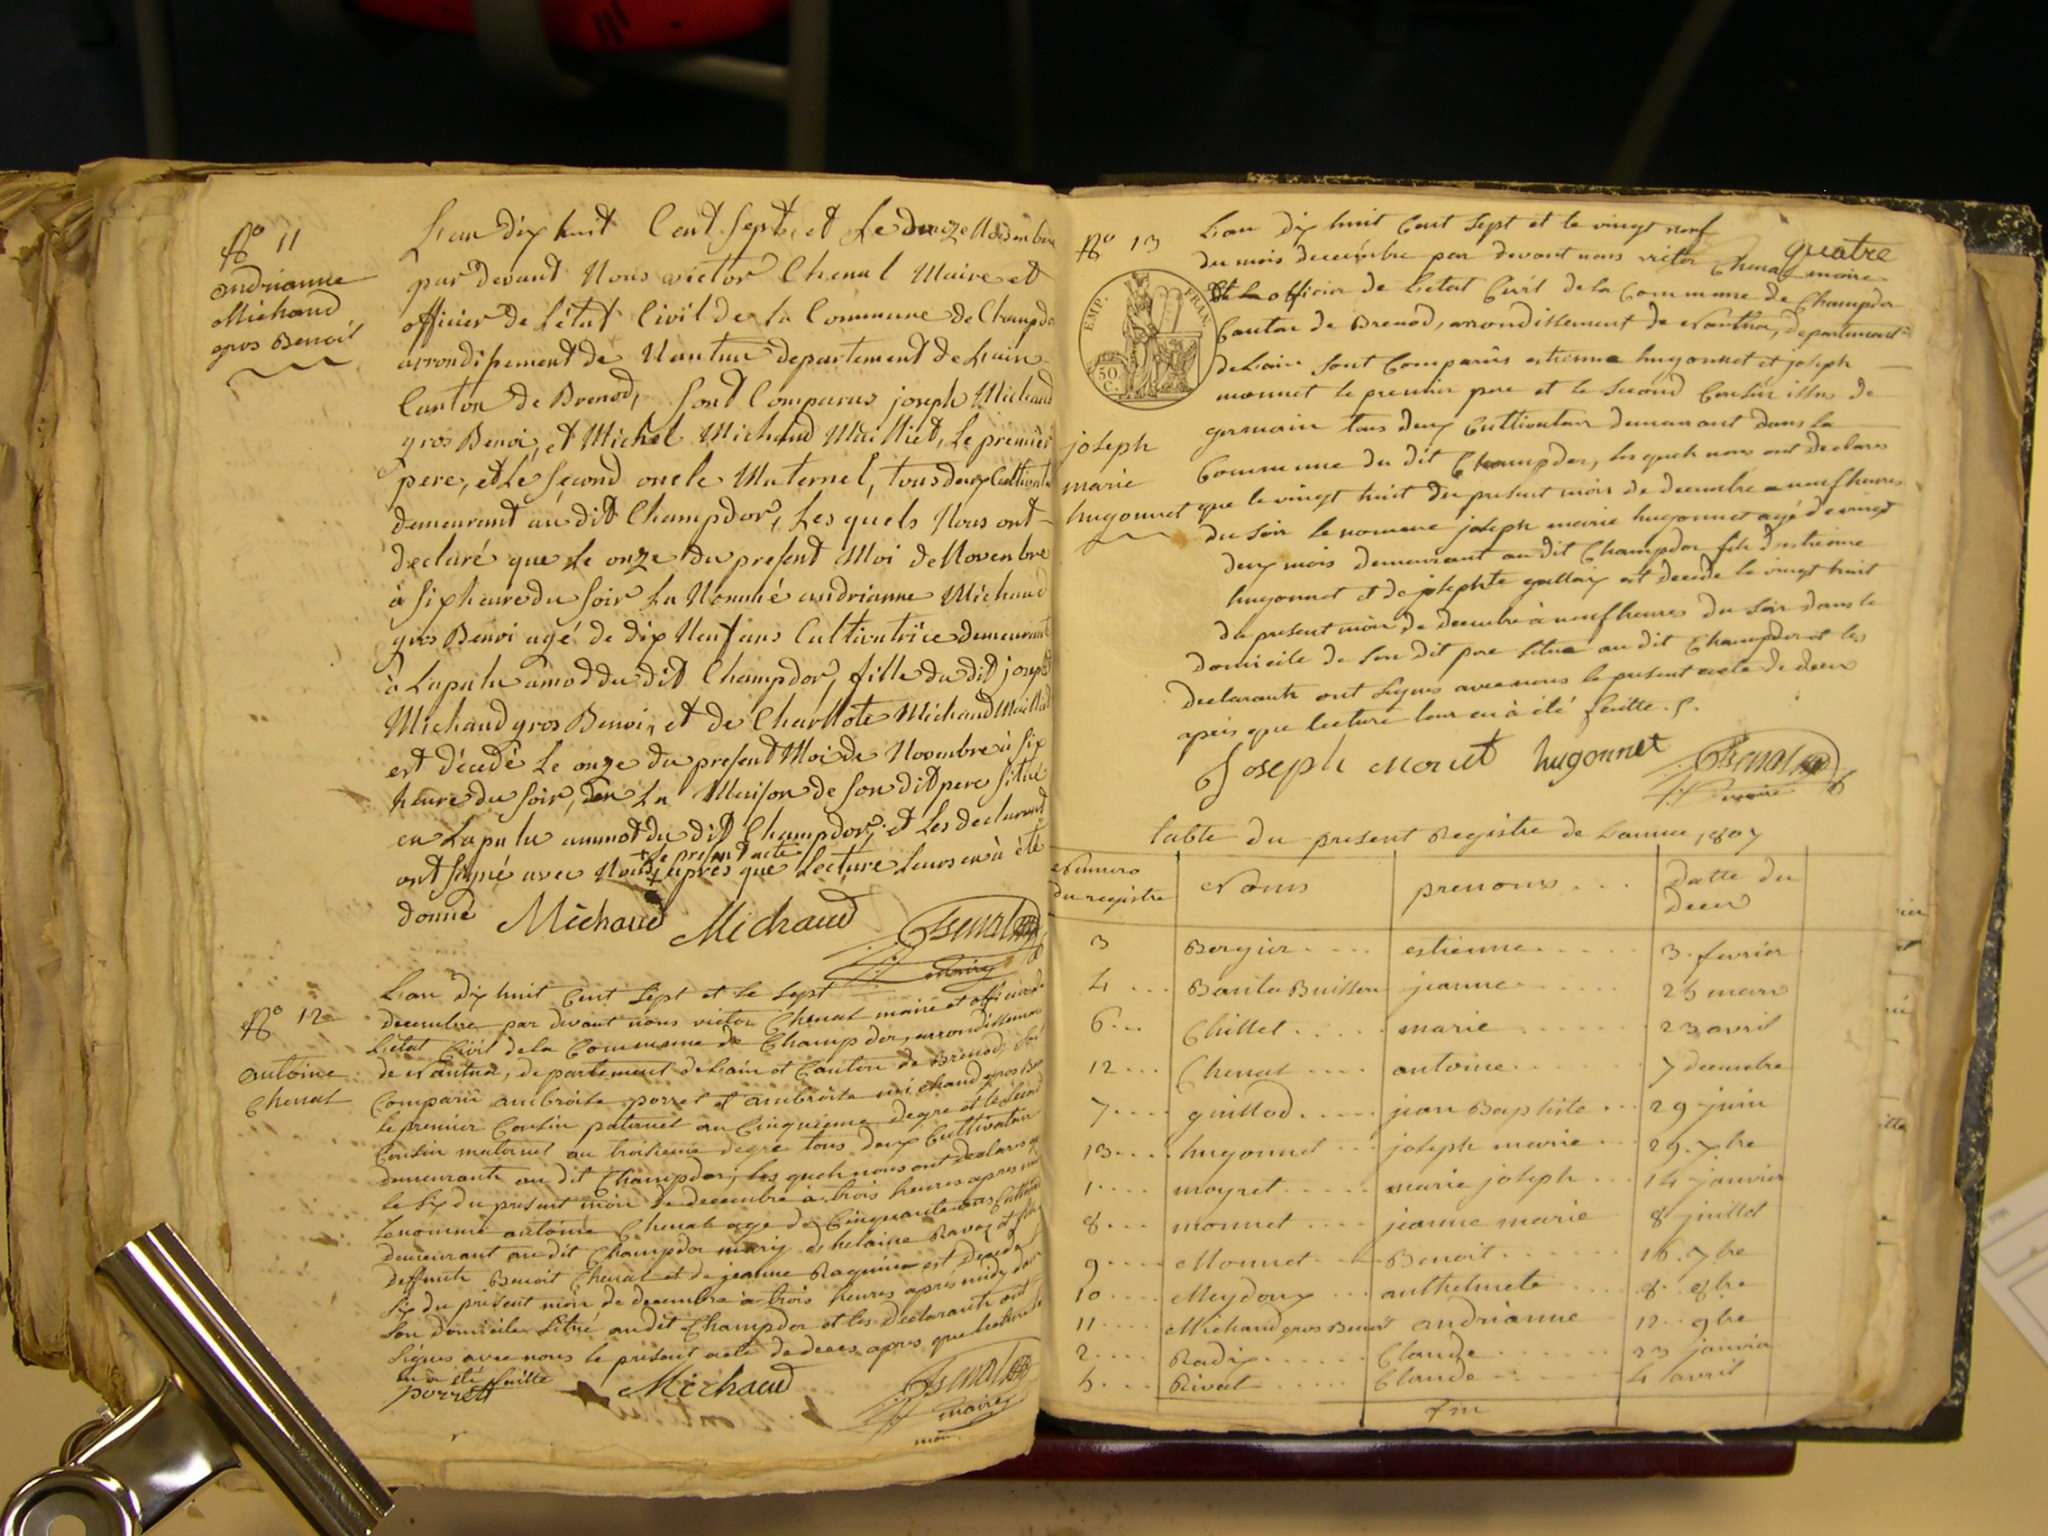 No 11
andrianne
Michaud
gros Benoit
L'an dix huit Cent Sept, et Le douze Novembre
par devant Nous victor Chenal Maire et
officier de L'état Civil de La Commune de Champdor
arrondissement de Nantua departement de L'ain
Canton de Brenod, Sont Comparus joseph Michaud
gros Benoi, et Michel Michaud Mailliet, Le premier
pere, et Le Second oncle Maternel, tous deux Cultivate
demeurant au dit Champdor, Les quels Nous ont
declaré que Le onze du present Moi de Novembre
à Six heure du Soir La Nommé andrianne Michaud
gros Benoi agé de dix Neuf ans Cultivatrice demeurant
à Lapalu amod du dit Champdor, fille du dit joseph
Michaud gros Benoi, et de Charllote Michaud Mailliet
est décedé Le onze du present Moi de Novembre à Six
heure du Soir, dan La Maison de Son dit pere Situé
en Lapalu ammot du dit Champdor, et Les declarant
+ le present acte
ont Signé avec Nous + après que Lecture Leurs en à été
donné Michaud Michaud Chenal
maire
No 12
antoine
Chenal
L'an dix huit Cent Sept et le Sept
decembre par devant nous victor Chenal maire et officier de
L'etat Civil de la Commune de Champdor, arrondissement
de Nantua, departement de L'ain et Canton de Brenod, Sont
Comparu ambroise porret et ambroise michaud gros Ben
le premier Cousin paternel au Cinquieme degre et le Second
Cousin maternel au troisieme degre tous deux Cultivateur
demeurants au dit Champdor, les quels nous ont declares que
le Six du present mois de decembre à trois heures apres midi
le nommé antoine Chenal agé de Cinquante ans Cultivat
demeurant au dit Champdor mary d'helaine Ravoz et fils
deffunts Benoit Chenal et de jeanne Raguin est decedé
Six du present mois de decembre à trois heures après midy dans
Son domicile Situé au dit Champdor et les Declarants ont
Signés avec nous le present acte de deces apres que lecture
en à été faitte
porrett Michaud Chenal
maire
quatre
No 13
EMP. FRAN.
50 C.
joseph
marie
hugonnet
L'an dix huit Cent Sept et le vingt neuf
du mois decembre par devant nous victor Chenal maire
et officier de L'etat Civil de la Commune de Champdor
Canton de Brenod, arrondissement de Nantua, departement
de L'ain Sont Comparûs estienne hugonnet et joseph
monnet le premier pere et le Second Cousin issus de
germain tous deux Cultivateur demeurant dans la
Commune du dit Champdor, les quels nous ont declares
que le vingt huit du present mois de decembre a neuf heures
du Soir le nommé joseph marie hugonnet agé de vingt
deux mois demeurant au dit Champdor fils d'estienne
hugonnet et de josephte gallaix est decede le vingt huit
du present mois de decembre à neuf heures du Soir dans le
domicile de Son dit pere Situé au dit Champdor et les
declarants ont Signes avec nous le present acte de deces
apres que lecture leur en à été faitte.
Joseph monet hugonnet Chenal
maire
table du present Registre de L'annee 1807
Numero du registre Noms prenoms Datte du deces
3 Bergier estienne 3 fevrier
4 BantaBuisson jeanne 25 mars
6 Chillet marie 23 avril
12 Chenal antoine 7 decembre
7 guillod jean Baptiste 29 juin
13 hugonnet joseph marie 29 xbre
1 moyret marie joseph 14 janvier
8 monnet jeanne marie 8 juillet
9 Monnet Benoit 16 7bre
10 Meydoux anthelmete 8 8bre
11 Michaud gros Benoit andrianne 12 9bre
2 Radix Claude 23 janvier
5 Rivat Claude 4 avril
fin